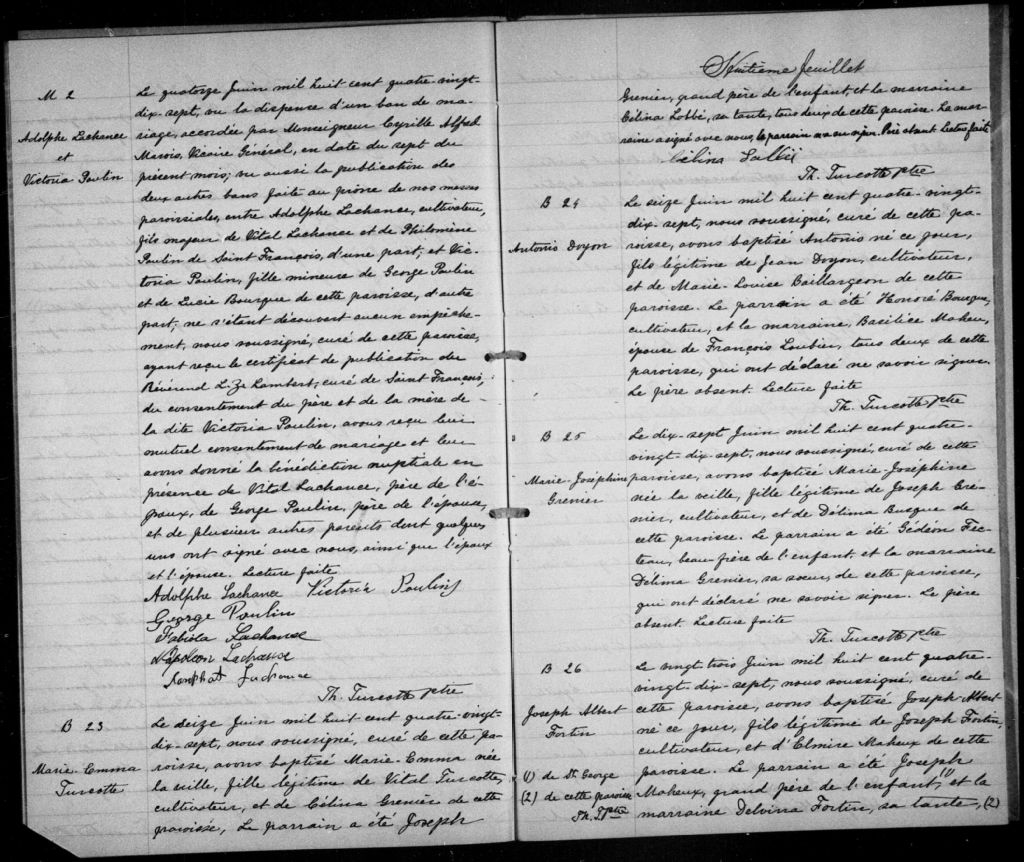 M 2
Adolphe Lachance
et
Victoria Poulin
Le quatorze Juin mil huit cent quatre-vingt-
dix-sept, vu la dispense d'un ban de ma-
riage, accordée par Monseigneur Cyrille Alfred
Marois, Vicaire Général, en date du sept du
présent mois; vu aussi la publication des
deux autres bans faite au prône de nos messes
paroissiales, entre Adolphe Lachance, cultivateur,
fils majeur de Vital Lachance et de Philomène
Poulin de Saint François, d'une part, et Vic-
toria Poulin, fille mineure de George Poulin
et de Lucie Bourque de cette paroisse, d'autre
part; ne s'étant découvert aucun empêche-
ment, nous soussigné, curé de cette paroisse,
ayant reçu le certificat de publication du
Révérend L. Z. Lambert, curé de Saint François,
du consentement du père et de la mère de
la dite Victoria Poulin, avons reçu leur
mutuel consentement de mariage et leur
avons donné la bénédiction nuptiale en
présence de Vital Lachance, père de l'é-
poux, de George Poulin, père de l'épouse,
et de plusieurs autres parents dont quelques
uns ont signé avec nous, ainsi que l'époux
et l'épouse. Lecture faite
Adolphe Lachance Victoria Poulin
George Poulin
Fabiola Lachance
Napoléon Lachance
Josaphat Lachance
Th. Turcotte ptre
B 23
Marie-Emma
Turcotte
Le seize Juin mil huit cent quatre-vingt-
dix-sept, nous soussigné, curé de cette pa-
roisse, avons baptisé Marie-Emma née
la veille, fille légitime de Vital Turcotte,
cultivateur, et de Célina Grenier de cette
paroisse. Le parrain a été Joseph
Huitième feuillet
Grenier, grand père de l'enfant, et la marraine
Célina Labbé, sa tante, tous deux de cette paroisse. La mar-
raine a signé avec nous, le parrain n'a su signer. Père absent Lecture faite
Célina Labbé
Th. Turcotte ptre
B 24
Antonio Doyon
Le seize Juin mil huit cent quatre-vingt-
dix-sept, nous soussigné, curé de cette pa-
roisse, avons baptisé Antonio né ce jour,
fils légitime de Jean Doyon, cultivateur,
et de Marie-Louise Baillargeon de cette
paroisse. Le parrain a été Honoré Bourque,
cultivateur, et la marraine, Basilice Maheu,
épouse de François Loubier, tous deux de cette
paroisse, qui ont déclaré ne savoir signer.
Le père absent. Lecture faite
Th. Turcotte ptre
B 25
Marie-Joséphine
Grenier
Le dix-sept Juin mil huit cent quatre-
vingt-dix-sept, nous soussigné, curé de cette
paroisse, avons baptisé Marie-Joséphine
née la veille, fille légitime de Joseph Gre-
nier, cultivateur, et de Délima Busque de
cette paroisse. Le parrain a été Gédéon Fec-
teau, beau-frère de l'enfant, et la marraine
Délima Grenier, sa sœur, de cette paroisse,
qui ont déclaré ne savoir signer. Le père
absent. Lecture faite
Th. Turcotte ptre
B 26
Joseph Albert
Fortin
(1) de St. George
(2) de cette paroisse
Th. T ptre
Le vingt trois Juin mil huit cent quatre-
vingt-dix-sept, nous soussigné, curé de
cette paroisse, avons baptisé Joseph-Albert
né ce jour, fils légitime de Joseph Fortin,
cultivateur, et d'Elmire Maheux de cette
paroisse. Le parrain a été Joseph
Maheux, grand père de l'enfant, (1) et la
marraine Delvina Fortin, sa tante, (2)